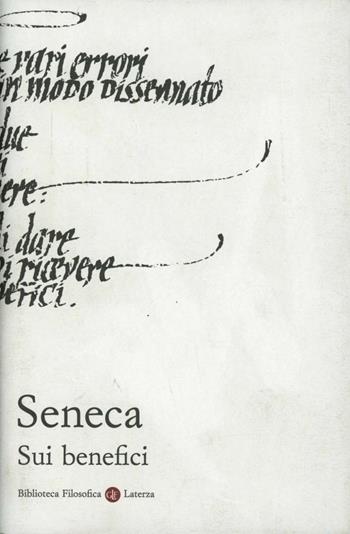 e vari errori
in modo dissennato
due
i
ere:
di dare
di ricevere
nefici.
Seneca
Sui benefici
Biblioteca Filosofica Laterza